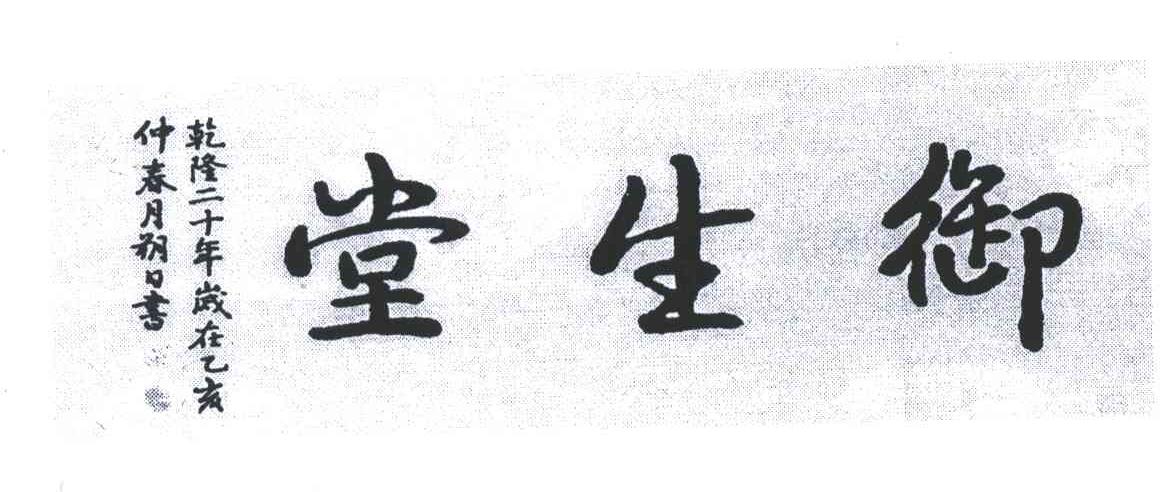 御生堂
乾隆二十年歲在乙亥
仲春月朔日書